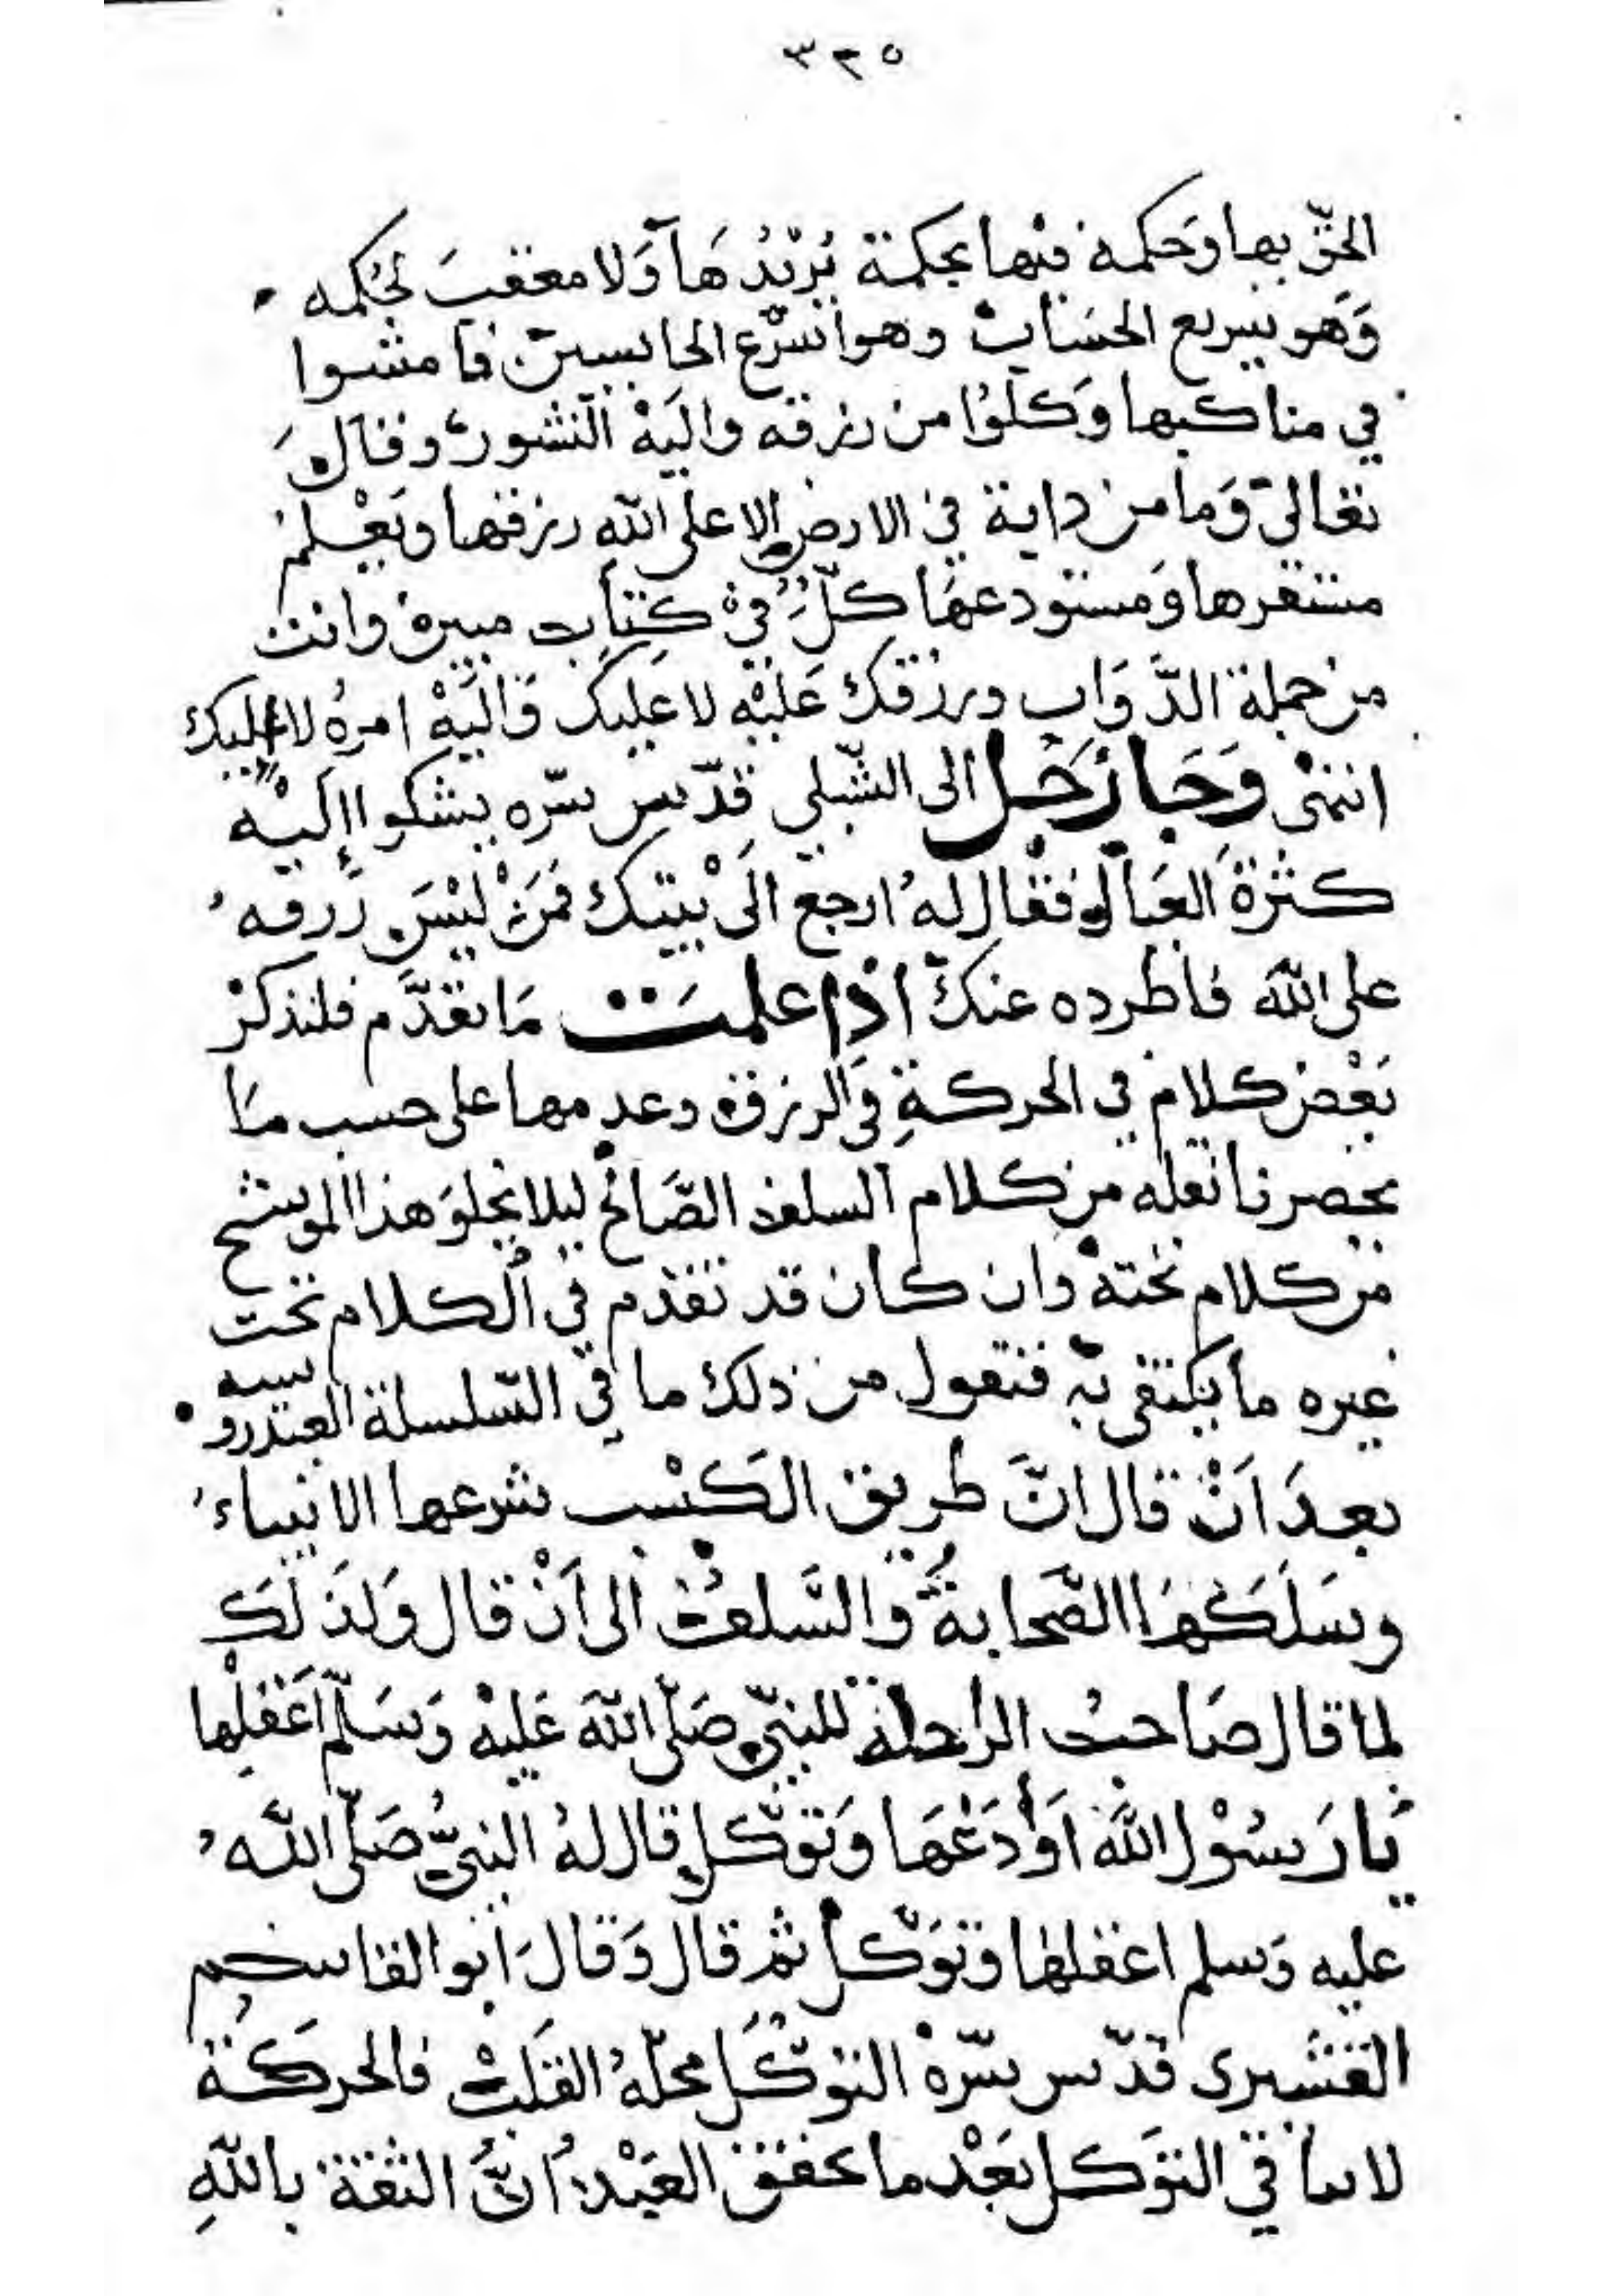 ٣٢٥
الحقّ بها وحكمه فيها بحكمة يُريْدُهَا وَلا معقبَ لحُكمه
وَهو سريع الحسَابْ وهو اسْرَع الحاسبين فامشوا
في مناكبها وَكلوُا من رزقه واليَهْ النشور وقالَ
تعالى وَما من دابة في الارض الا على الله رزقها ويَعْلمُ
مستقرها وَمستودعهَا كلٌّ فيْ كِتَابٍ مبين وانت
من جملة الدَّوَاب ورزقك عَليْه لا عَليك وَاليَهْ امرهُ لا اليك
انتهى وَجَا رَجُل الى الشبلي قدّس سّره يشكوا إليْه
كثرةَ العيال فقال لهُ ارجع الىَ بْيتك فمَنْ ليْسَ رَزقه
على اللهَ فاطرده عنكَ اذا علمتَ مَا تقدَّم فلنذكرْ
بَعْض كلام في الحركةِ في الرزق وعدمها على حسب مَا
يحصرنا نقله من كلام السلف الصَّالح ليلا يخلوَ هذا الموشح
من كلام تحته وان كان قد تقدم في الكلام تحت
غيره ما يكتفى بهِ فنقول من ذلك ما في السّلسلة العيدروسيه
بعدَ اَنْ قال انَّ طريق الكَسْب شرعها الانبياءُ
وسَلَكَهَا الصَّحابةُ والسَّلفُ الى اَنْ قال وَلذلَك
لما قال صَاحبُ الراحلة للنبيّ صَلّى اللهَ عَليْه وَسَلّم اَعْقلْها
يَا رَسُوْل اللهَ اَوْ اَدَعْهَا وَتَوّكل قال لهُ النبيُّ صَلّى اللهُ
عليه وَسلم اعقلها وَتوَكّل ثم قال وَقالَ ابو القاسم
القشيرى قدّس سّرهْ التوَكّل محلّهُ القَلبْ فالحركَة
لا تنا في التوَكل بَعْد ما تحقق العَبْدُ اَنَّ الثقة باللهِ